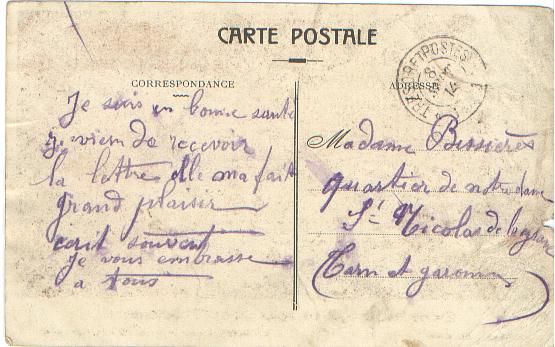 CARTE POSTALE
CORRESPONDANCE
ADRESSE
TRESOR ET POSTES
Je suis en bonne santé
je vien de recevoir
la lettre elle ma fait
grand plaisir
ecrit souvent
je vous embrasse
a tous
Madame Bessières
quartier de notre dame
St Nicolas de la grave
Tarn et garonne